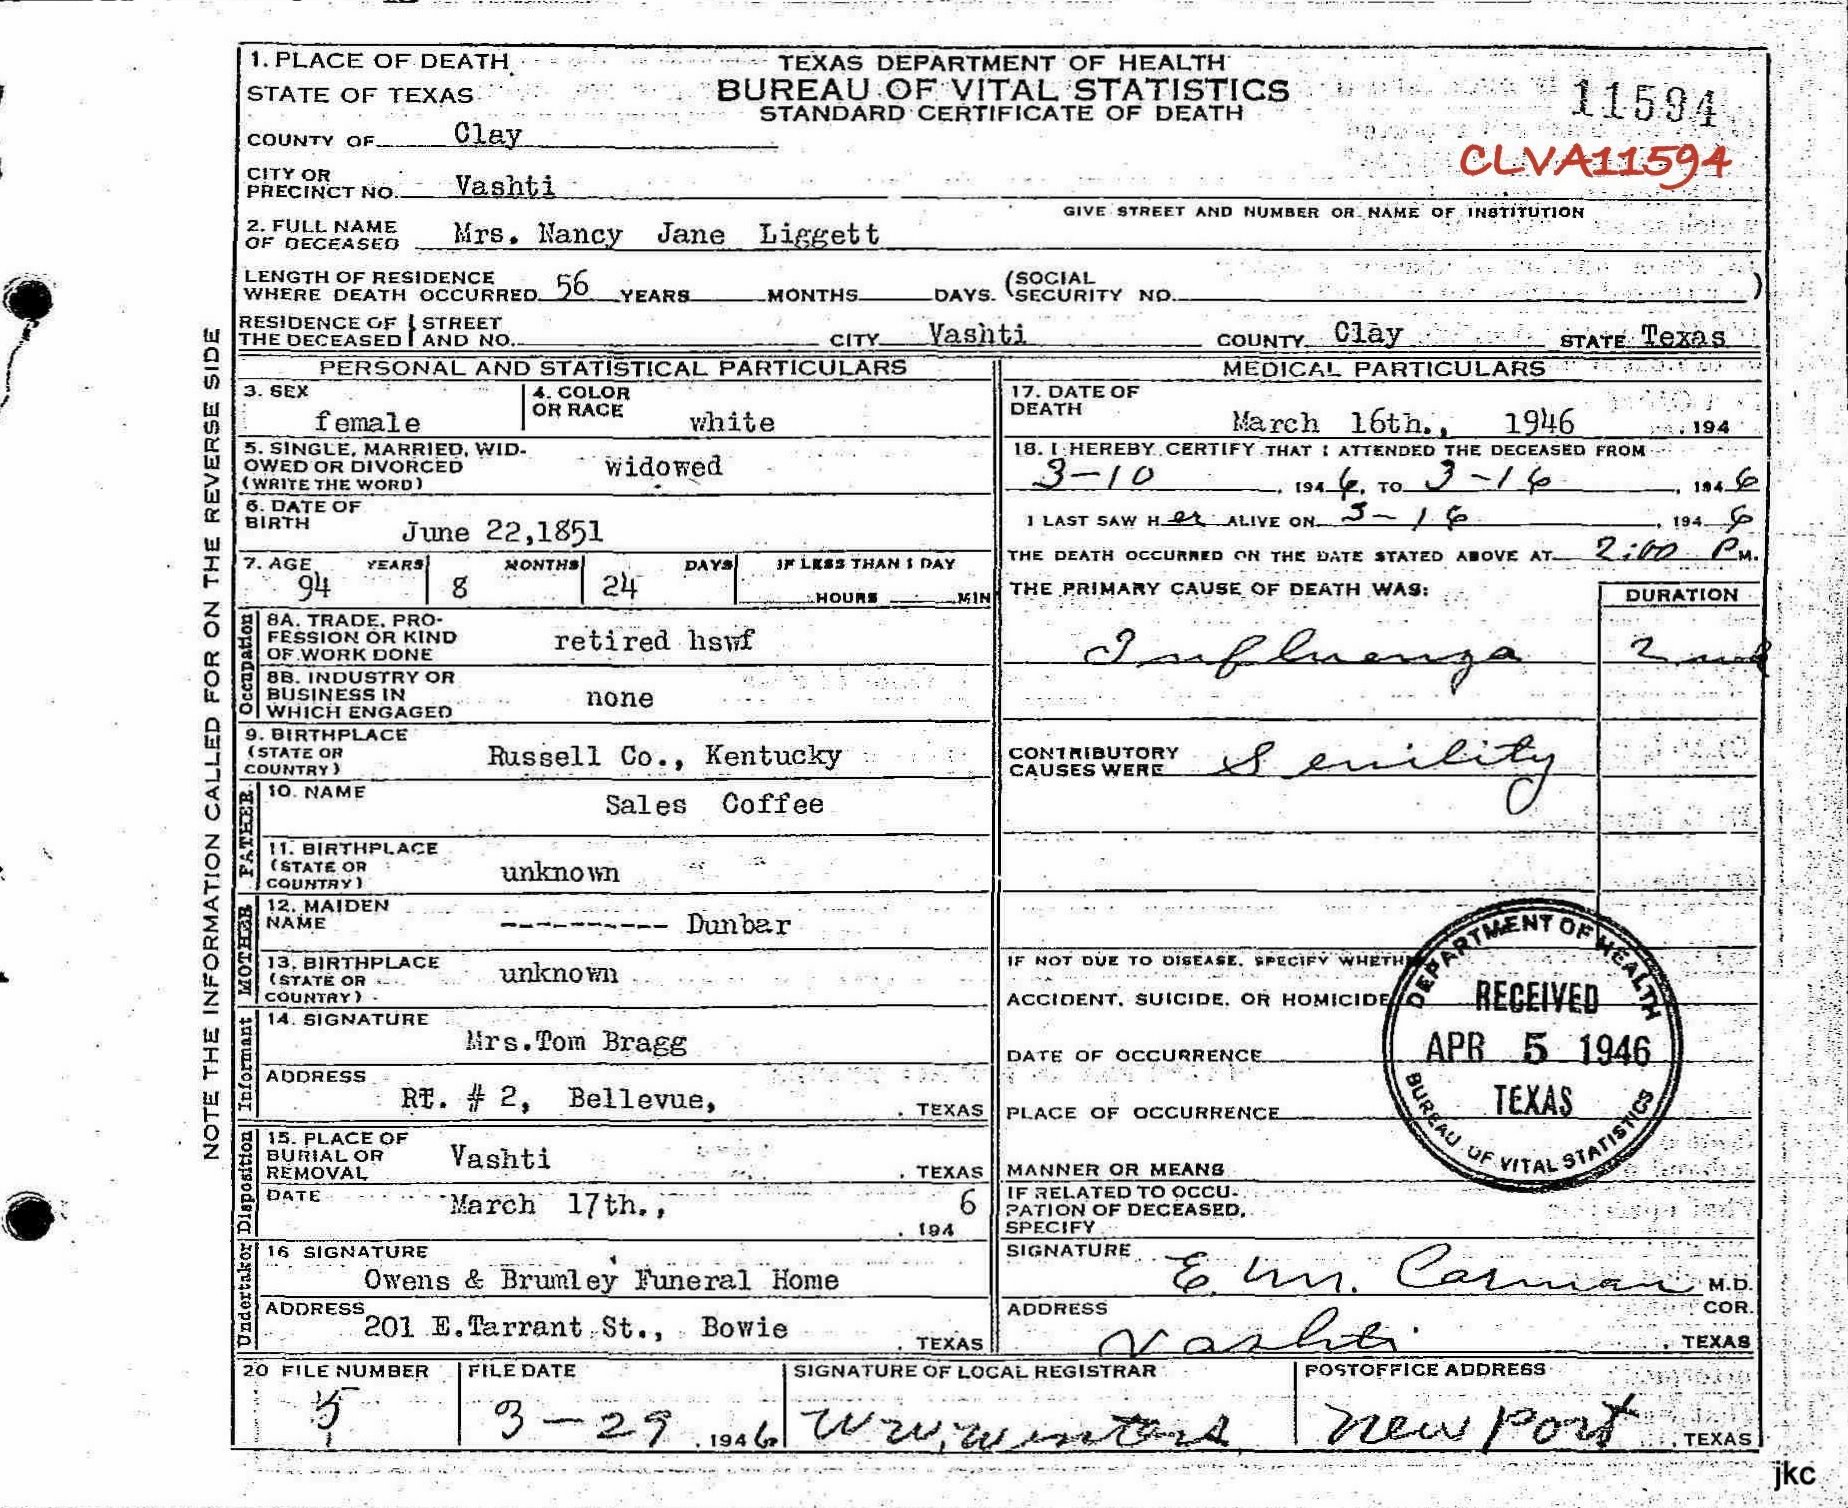 1. PLACE OF DEATH
STATE OF TEXAS
COUNTY OF Clay
CITY OR
PRECINCT NO. Vashti
TEXAS DEPARTMENT OF HEALTH
BUREAU OF VITAL STATISTICS
STANDARD CERTIFICATE OF DEATH
11594
CLVA11594
GIVE STREET AND NUMBER OR NAME OF INSTITUTION
2. FULL NAME
OF DECEASED Mrs. Nancy Jane Liggett
LENGTH OF RESIDENCE
WHERE DEATH OCCURRED 56 YEARS MONTHS DAYS. (SOCIAL
SECURITY NO. )
RESIDENCE OF THE DECEASED STREET AND NO. CITY Vashti COUNTY Clay STATE Texas
NOTE THE INFORMATION CALLED FOR ON THE REVERSE SIDE
PERSONAL AND STATISTICAL PARTICULARS
3. SEX
female
4. COLOR
OR RACE white
5. SINGLE, MARRIED, WID-
OWED OR DIVORCED widowed
(WRITE THE WORD)
6. DATE OF
BIRTH June 22,1851
7. AGE YEARS MONTHS DAYS IF LESS THAN 1 DAY
94 8 24 HOURS MIN
Occupation
8A. TRADE, PRO-
FESSION OR KIND retired hswf
OF WORK DONE
8B. INDUSTRY OR
BUSINESS IN none
WHICH ENGAGED
9. BIRTHPLACE
(STATE OR Russell Co., Kentucky
COUNTRY)
FATHER
10. NAME Sales Coffee
11. BIRTHPLACE
(STATE OR unknown
COUNTRY)
MOTHER
12. MAIDEN
NAME ---------- Dunbar
13. BIRTHPLACE
(STATE OR unknown
COUNTRY)
Informant
14. SIGNATURE
Mrs.Tom Bragg
ADDRESS
RT. # 2, Bellevue, , TEXAS
Disposition
15. PLACE OF
BURIAL OR Vashti
REMOVAL , TEXAS
DATE March 17th., 6
, 194
Undertaker
16 SIGNATURE
Owens & Brumley Funeral Home
ADDRESS
201 E.Tarrant St., Bowie , TEXAS
MEDICAL PARTICULARS
17. DATE OF
DEATH March 16th., 1946 , 194
18. I HEREBY CERTIFY THAT I ATTENDED THE DECEASED FROM
3-10 , 194 6, TO 3-16 , 194 6
I LAST SAW H er ALIVE ON 3-16 , 194 6
THE DEATH OCCURRED ON THE DATE STATED ABOVE AT 2:00 P M.
THE PRIMARY CAUSE OF DEATH WAS: DURATION
Influenza 2
CONTRIBUTORY
CAUSES WERE Senility
IF NOT DUE TO DISEASE, SPECIFY WHETH
ACCIDENT, SUICIDE, OR HOMICIDE
DATE OF OCCURRENCE
PLACE OF OCCURRENCE
MANNER OR MEANS
IF RELATED TO OCCU-
PATION OF DECEASED,
SPECIFY
DEPARTMENT OF HEALTH
RECEIVED
APR 5 1946
TEXAS
BUREAU OF VITAL STATISTICS
SIGNATURE E. M. Carman M.D.
COR.
ADDRESS
Vashti , TEXAS
20 FILE NUMBER FILE DATE SIGNATURE OF LOCAL REGISTRAR POSTOFFICE ADDRESS
5 3-29 , 194 6 W W. Winters Newport , TEXAS
jkc